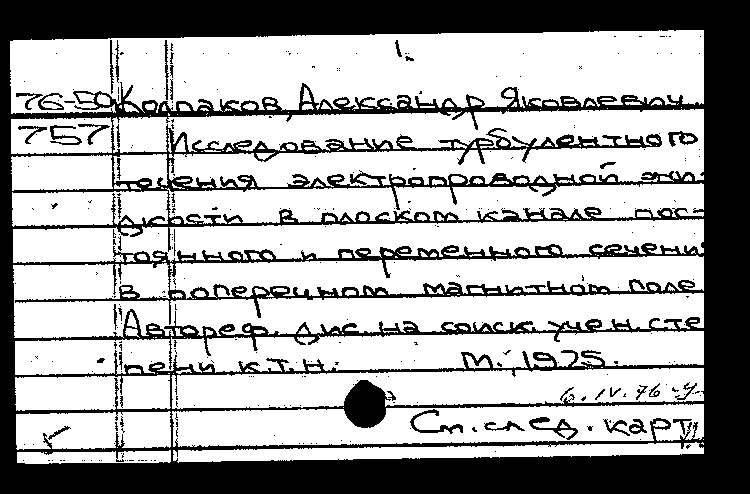 1.
76-50 Колпаков, Александр Яковлевич
757 Исследование турбулентного
течения электропроводной жи-
дкости в плоском канале пос-
тоянного и переменного сечения
в поперечном магнитном поле.
Автореф. дис. на соиск. учен. сте
пени к.т.н. М., 1975.
6.IV.76
См. след. карт